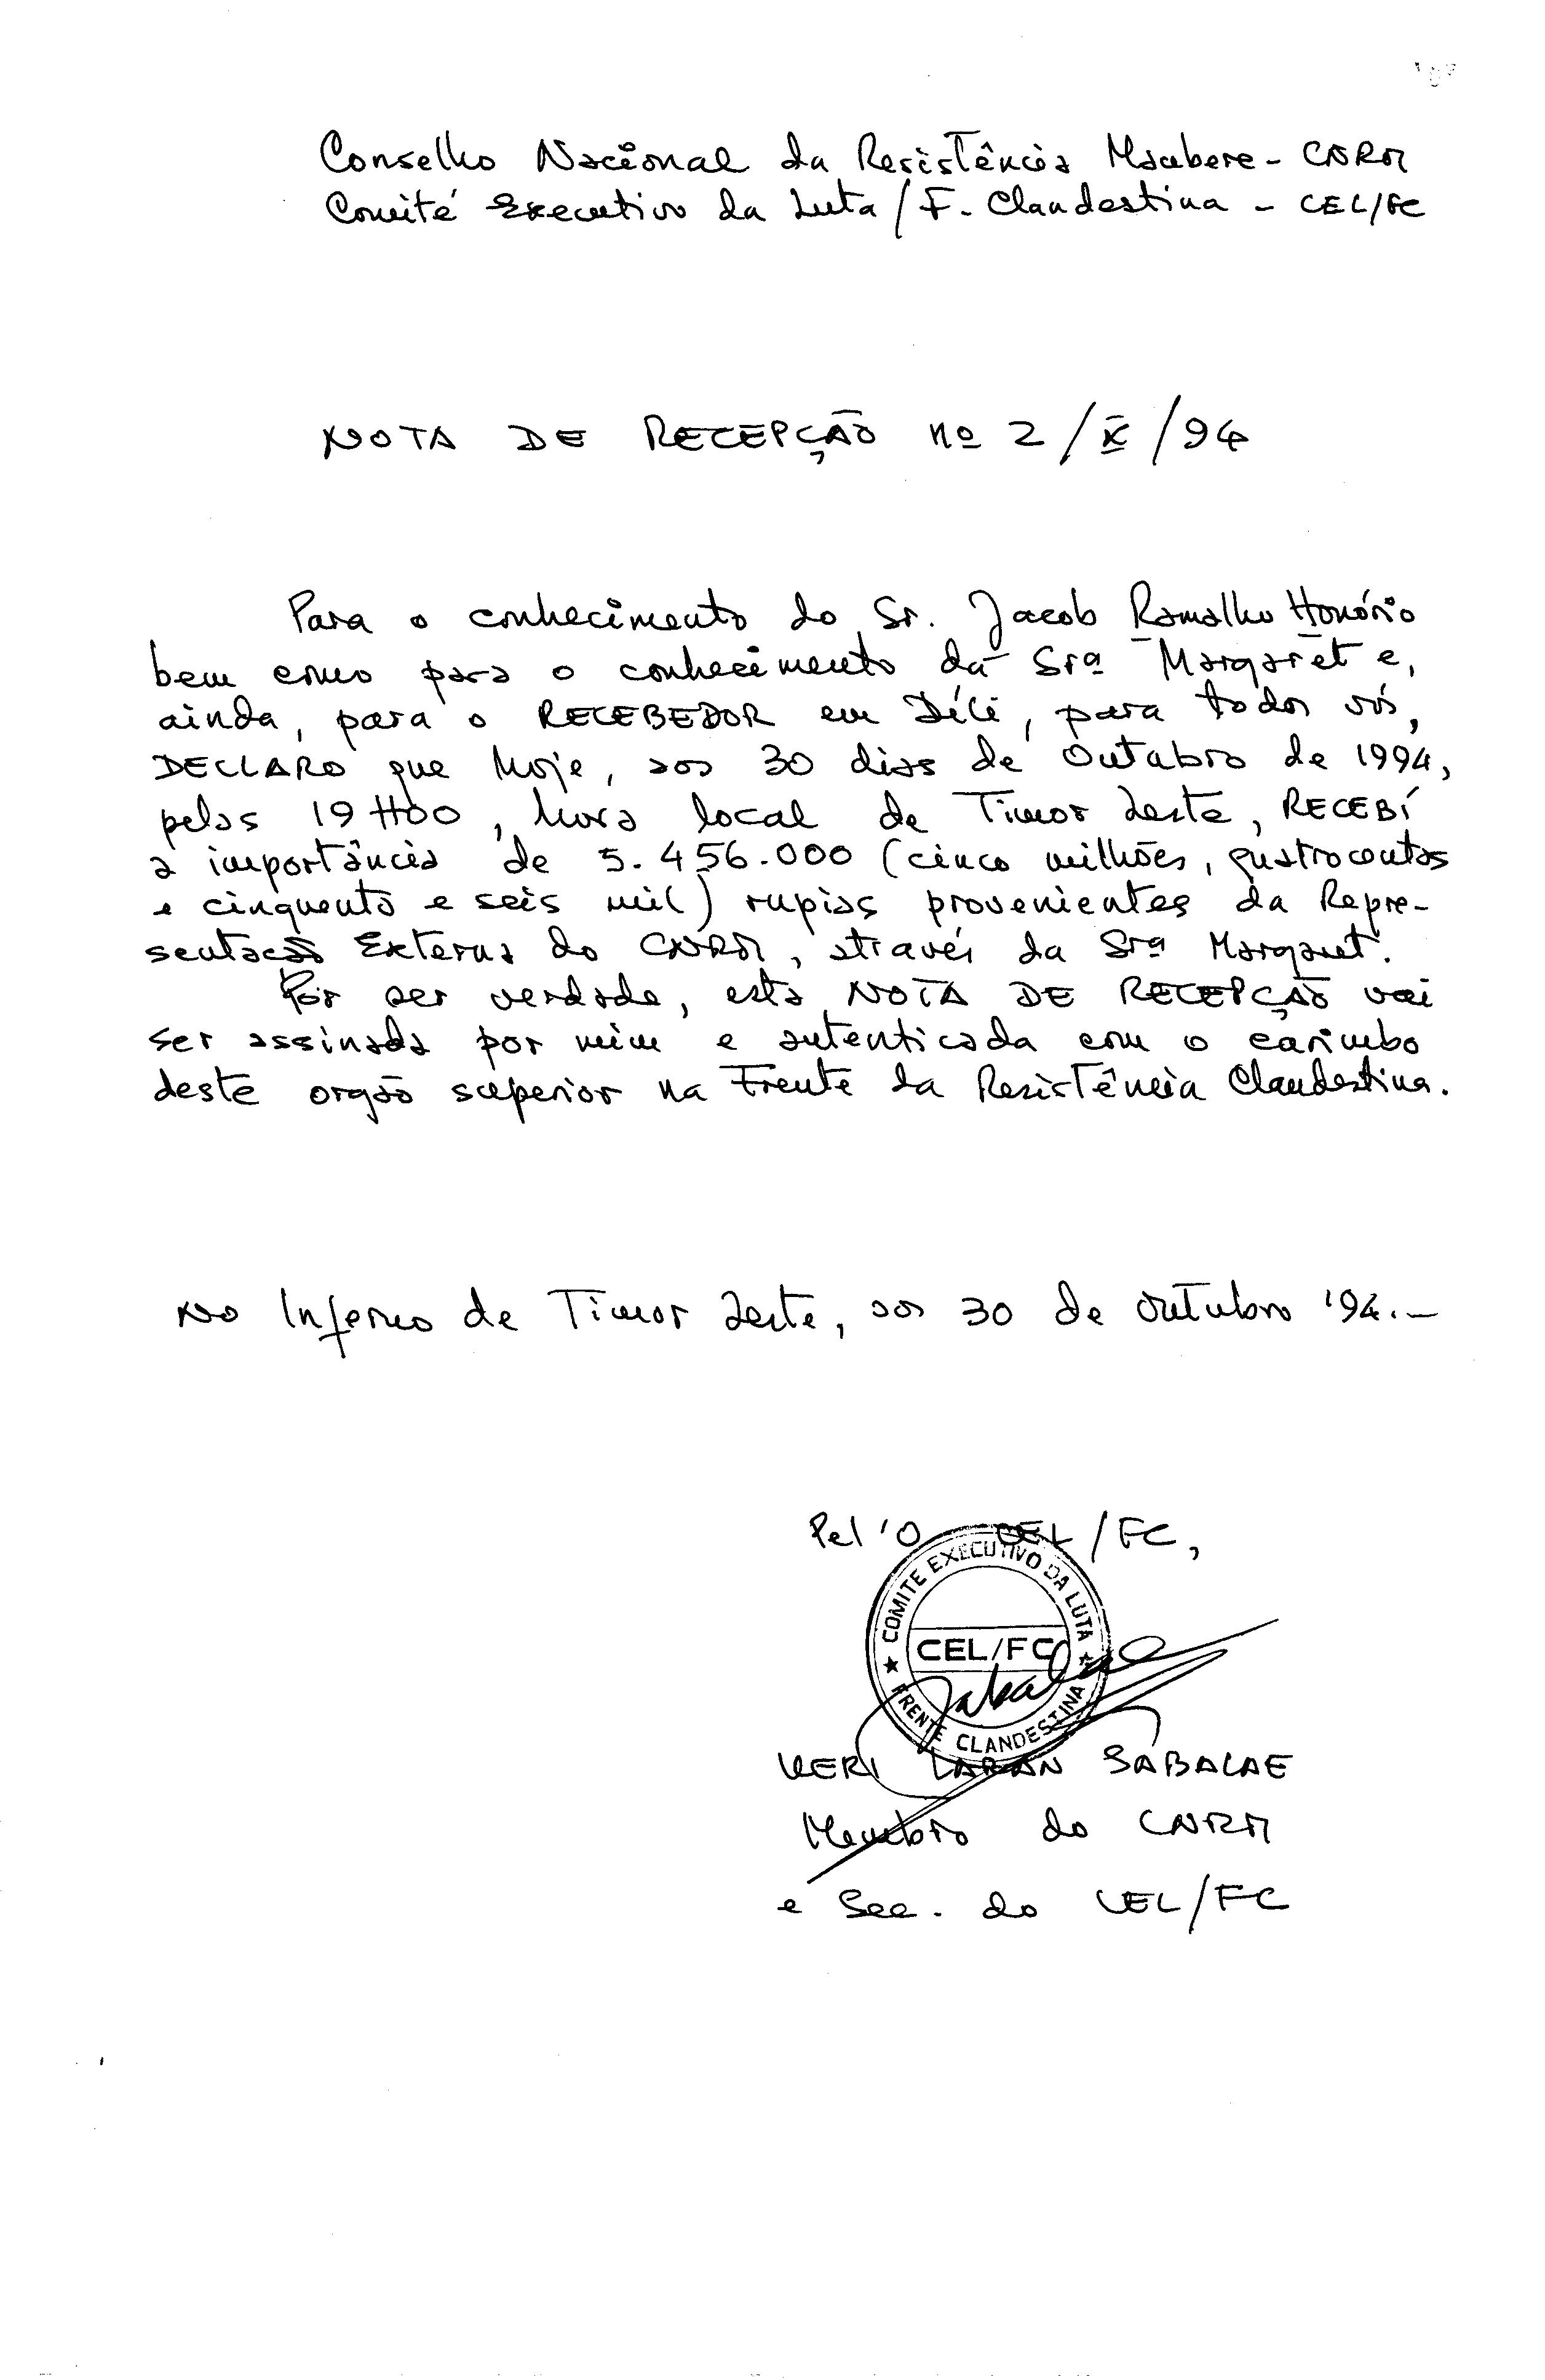 Conselho Nacional da Resistência Maubere - CNRM
Comité Executivo da Luta / F. Clandestina - CEL/FC
NOTA DE RECEPÇÃO nº 2/X/94
Para o conhecimento do Sr. Jacob Ramalho Honório
bem como para o conhecimento da Srª Margaret e,
ainda, para o RECEBEDOR em Díli, para todos vós,
DECLARO que hoje, aos 30 dias de Outubro de 1994,
pelas 19H00, hora local de Timor Leste, RECEBÍ
a importância de 5.456.000 (cinco milhões, quatrocentos
e cinquenta e seis mil) rupias provenientes da Repre-
sentação Externa do CNRM, através da Srª Margaret.
Por ser verdade, esta NOTA DE RECEPÇÃO vai
ser assinada por mim e autenticada com o carimbo
deste orgão superior na Frente da Resistência Clandestina.
No Inferno de Timor Leste, aos 30 de Outubro '94.-
Pel'O CEL/FC,
COMITE EXECUTIVO DA LUTA
CEL/FC
Sabalae
★ FRENTE CLANDESTINA ★
KERI LARAN SABALAE
Membro do CNRM
e Sec. do CEL/FC